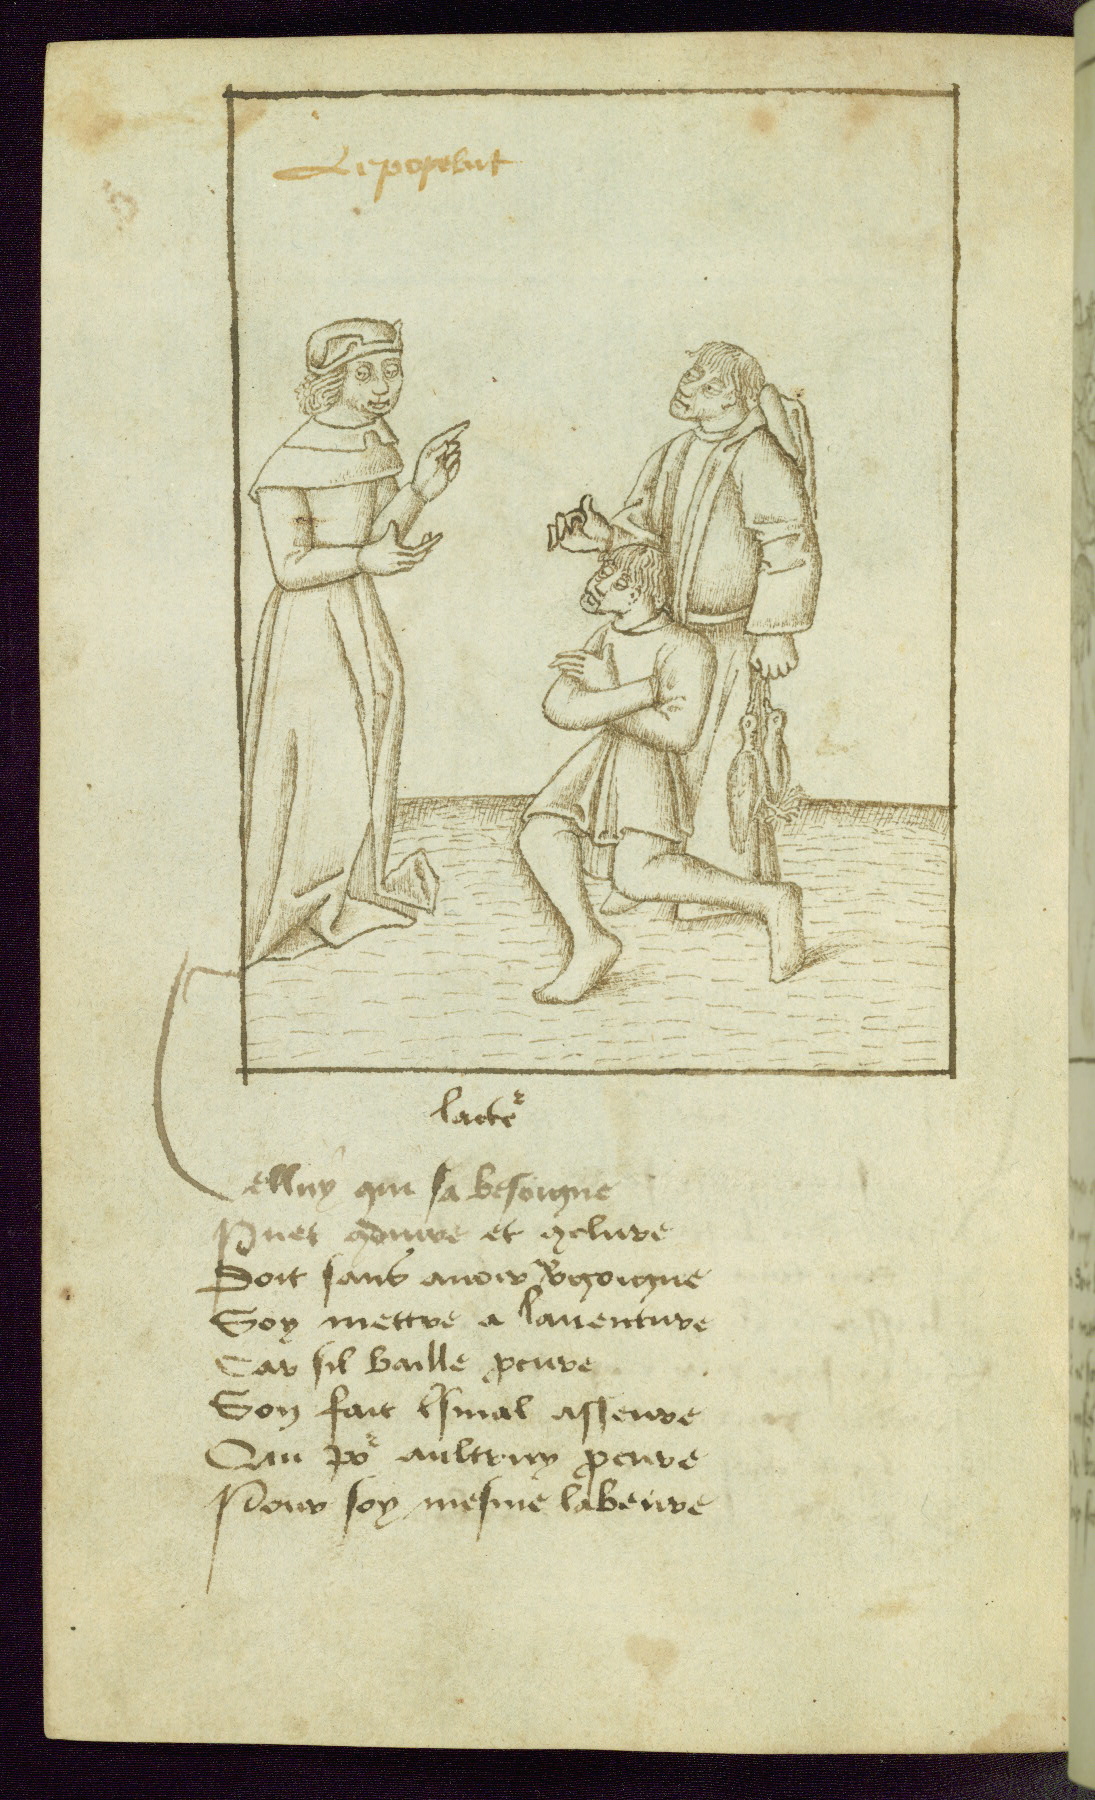 lacteʳ
elluy qui sa besoigne
Puet ꝯduire et ꝯclure
Doit sans auoir v̾goigne
Soy mettre a lauenture
Car sil baille ꝓcure
Son fait mal asseure
Qui poʳ aultruy ꝓcure
Pour soy mesme labeure